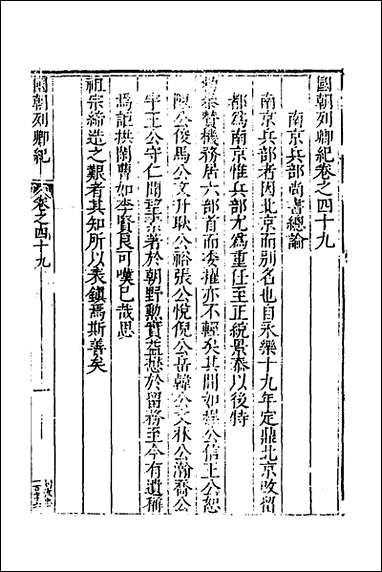 國朝列卿紀卷之四十九
南京兵部尚書總論
南京兵部者因北京而別名也自永樂十九年定鼎北京改留
都爲南京惟兵部尤爲重任至正統景泰以後特
參贊機務居六部首而委擢亦不輕矣其間如程公信王公恕
陳公俊馬公文升耿公裕張公悅倪公岳韓公文林公瀚喬公
宇王公守仁聞望素著於朝野勲實益懋於留務至今有遺稱
焉詎拱闇曹如李賢良可嘆已哉思
祖宗締造之艱者其知所以表鎮焉斯善矣
國朝列卿紀
卷之四十九
一